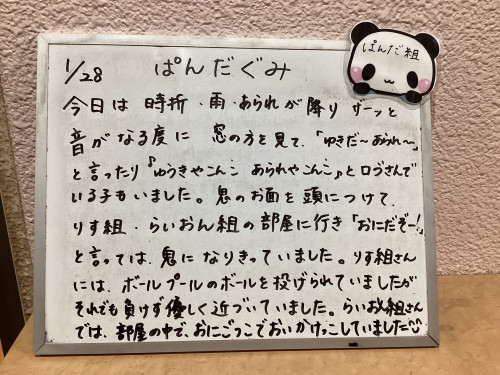 1/28 ぱんだぐみ
ぱんだ組
今日は時折・雨・あられが降りザーッと
音がなる度に 窓の方を見て、「ゆきだ〜あられ〜」
と言ったり『ゆうきやこんこ あられやこんこ』と口ずさんで
いる子もいました。鬼のお面を頭につけて、
りす組・らいおん組の部屋に行き「おにだぞー!」
と言っては、鬼になりきっていました。りす組さん
には、ボールプールのボールを投げられていましたが
それでも負けず優しく近づいていました。らいおん組さん
では、部屋の中で、おにごっこでおいかけっこしていました